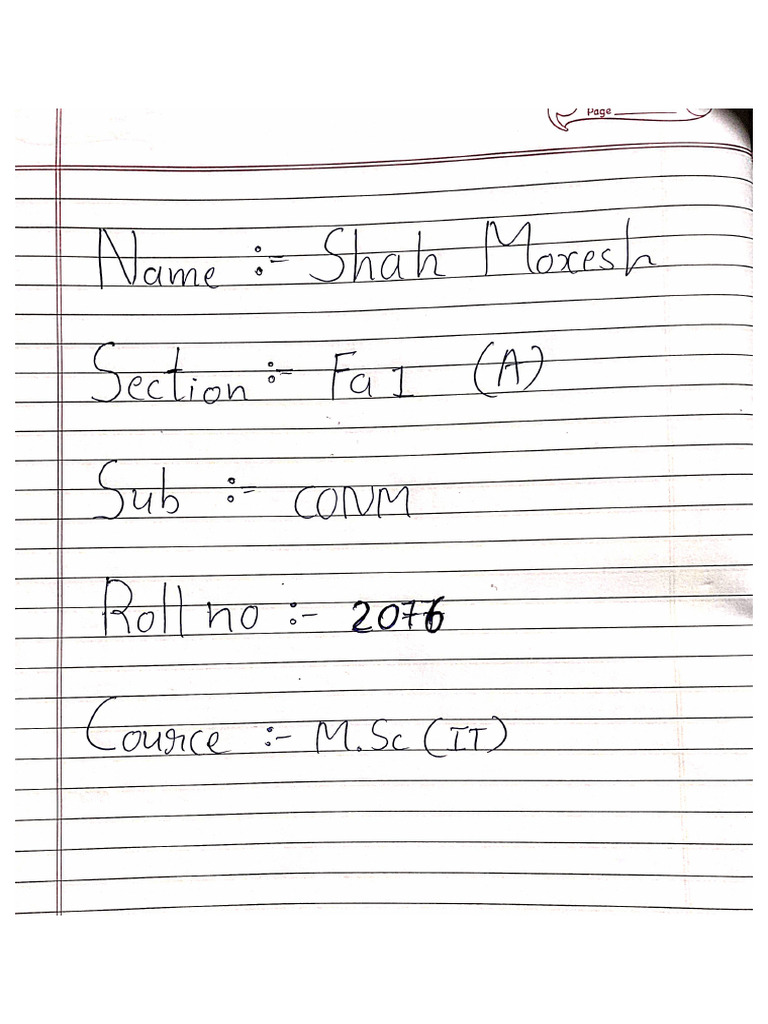 Page
Name :- Shah Moxesh
Section :- Fa 1 (A)
Sub :- CONM
Roll no :- 2076
Cource :- M.Sc (IT)